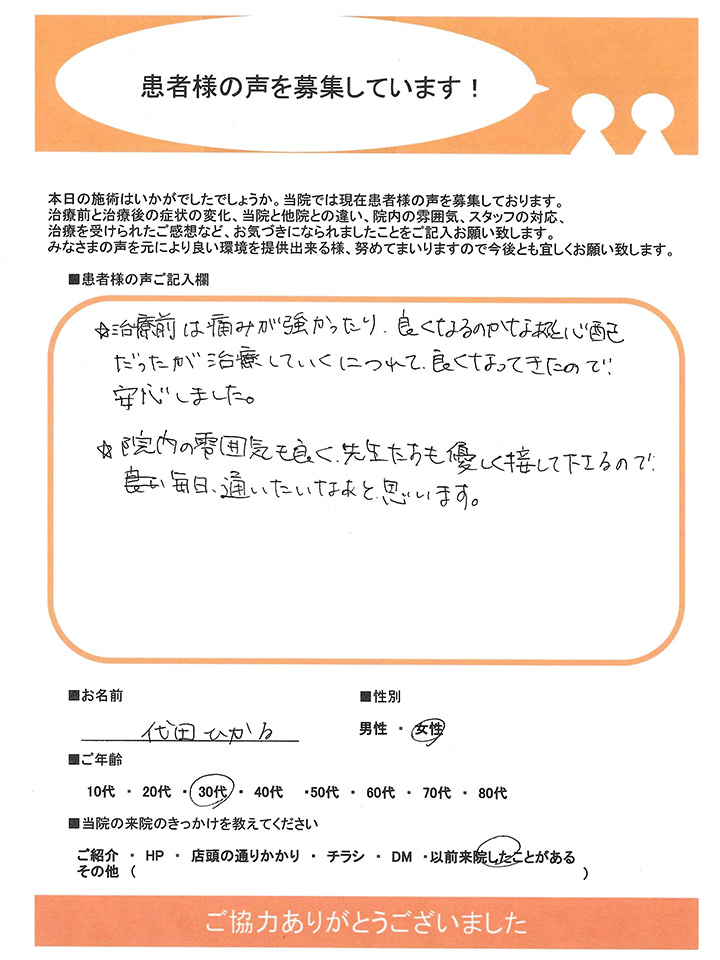 患者様の声を募集しています！
本日の施術はいかがでしたでしょうか。当院では現在患者様の声を募集しております。
治療前と治療後の症状の変化、当院と他院との違い、院内の雰囲気、スタッフの対応、
治療を受けられたご感想など、お気づきになられましたことをご記入お願い致します。
みなさまの声を元により良い環境を提供出来る様、努めてまいりますので今後とも宜しくお願い致します。
■患者様の声ご記入欄
☆治療前は痛みが強かったり、良くなるのかなあと心配
だったが治療していくにつれて、良くなってきたので、
安心しました。
☆院内の雰囲気も良く、先生たちも優しく接して下さるので、
毎日、通いたいなあと思います。
■お名前
代田ひかる
■性別
男性 ・ 女性
■ご年齢
10代 ・ 20代 ・ 30代 ・ 40代 ・50代 ・ 60代 ・ 70代 ・ 80代
■当院の来院のきっかけを教えてください
ご紹介 ・ HP ・ 店頭の通りかかり ・ チラシ ・ DM ・以前来院したことがある
その他 （ ）
ご協力ありがとうございました